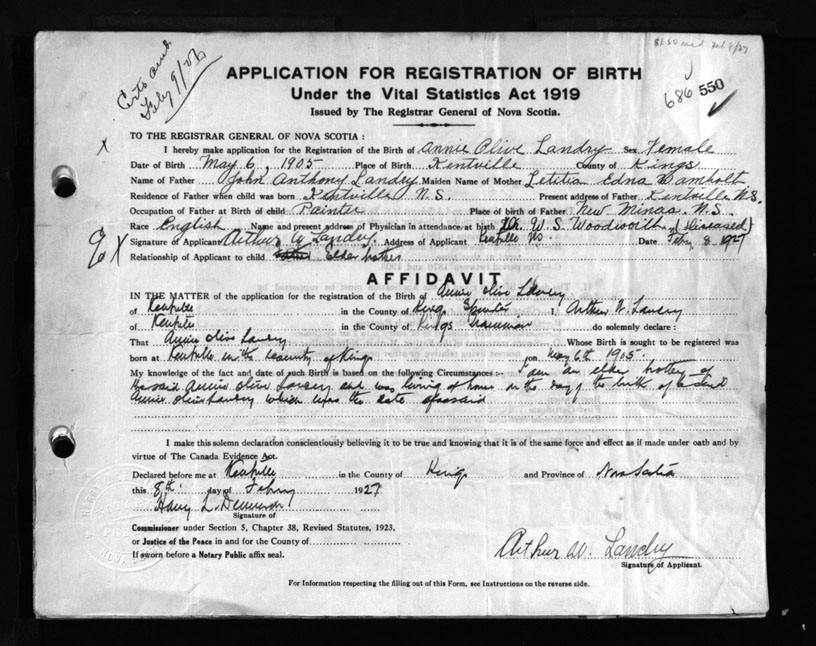 Feby 9/27
686 550
APPLICATION FOR REGISTRATION OF BIRTH
Under the Vital Statistics Act 1919
Issued by The Registrar General of Nova Scotia.
TO THE REGISTRAR GENERAL OF NOVA SCOTIA :
I hereby make application for the Registration of the Birth of Annie Olive Landry Sex Female
Date of Birth May 6, 1905 Place of Birth Kentville County of Kings
Name of Father John Anthony Landry Maiden Name of Mother Letitia Edna
Residence of Father when child was born Kentville N.S. Present address of Father Kentville N.S.
Occupation of Father at Birth of child Painter Place of birth of Father New Minas. N.S.
Race English Name and present address of Physician in attendance at birth Dr. W. S. Woodworth (Diseased)
Signature of Applicant Arthur W Landry Address of Applicant Kentville NS. Date Feby 8. 1927
Relationship of Applicant to child elder brother
AFFIDAVIT
IN THE MATTER of the application for the registration of the Birth of Annie Olive Landry
of Kentville in the County of Kings I, Arthur W. Landry
of Kentville in the County of Kings do solemnly declare :
That Annie Olive Landry Whose Birth is sought to be registered was
born at Kentville in the County of Kings on May 6th 1905.
My knowledge of the fact and date of such Birth is based on the following Circumstances :— I am an elder brother of
the said Annie Olive Landry and was living at home on the day of the birth of
Annie Olive Landry which was the date
I make this solemn declaration conscientiously believing it to be true and knowing that it is of the same force and effect as if made under oath and by
virtue of The Canada Evidence Act.
Declared before me at Kentville in the County of Kings and Province of Nova Scotia
this 8th day of Februy 1927
Harry L.
Signature of
Commissioner under Section 5, Chapter 38, Revised Statutes, 1923,
or Justice of the Peace in and for the County of
If sworn before a Notary Public affix seal.
Arthur W. Landry
Signature of Applicant.
For Information respecting the filling out of this Form, see Instructions on the reverse side.